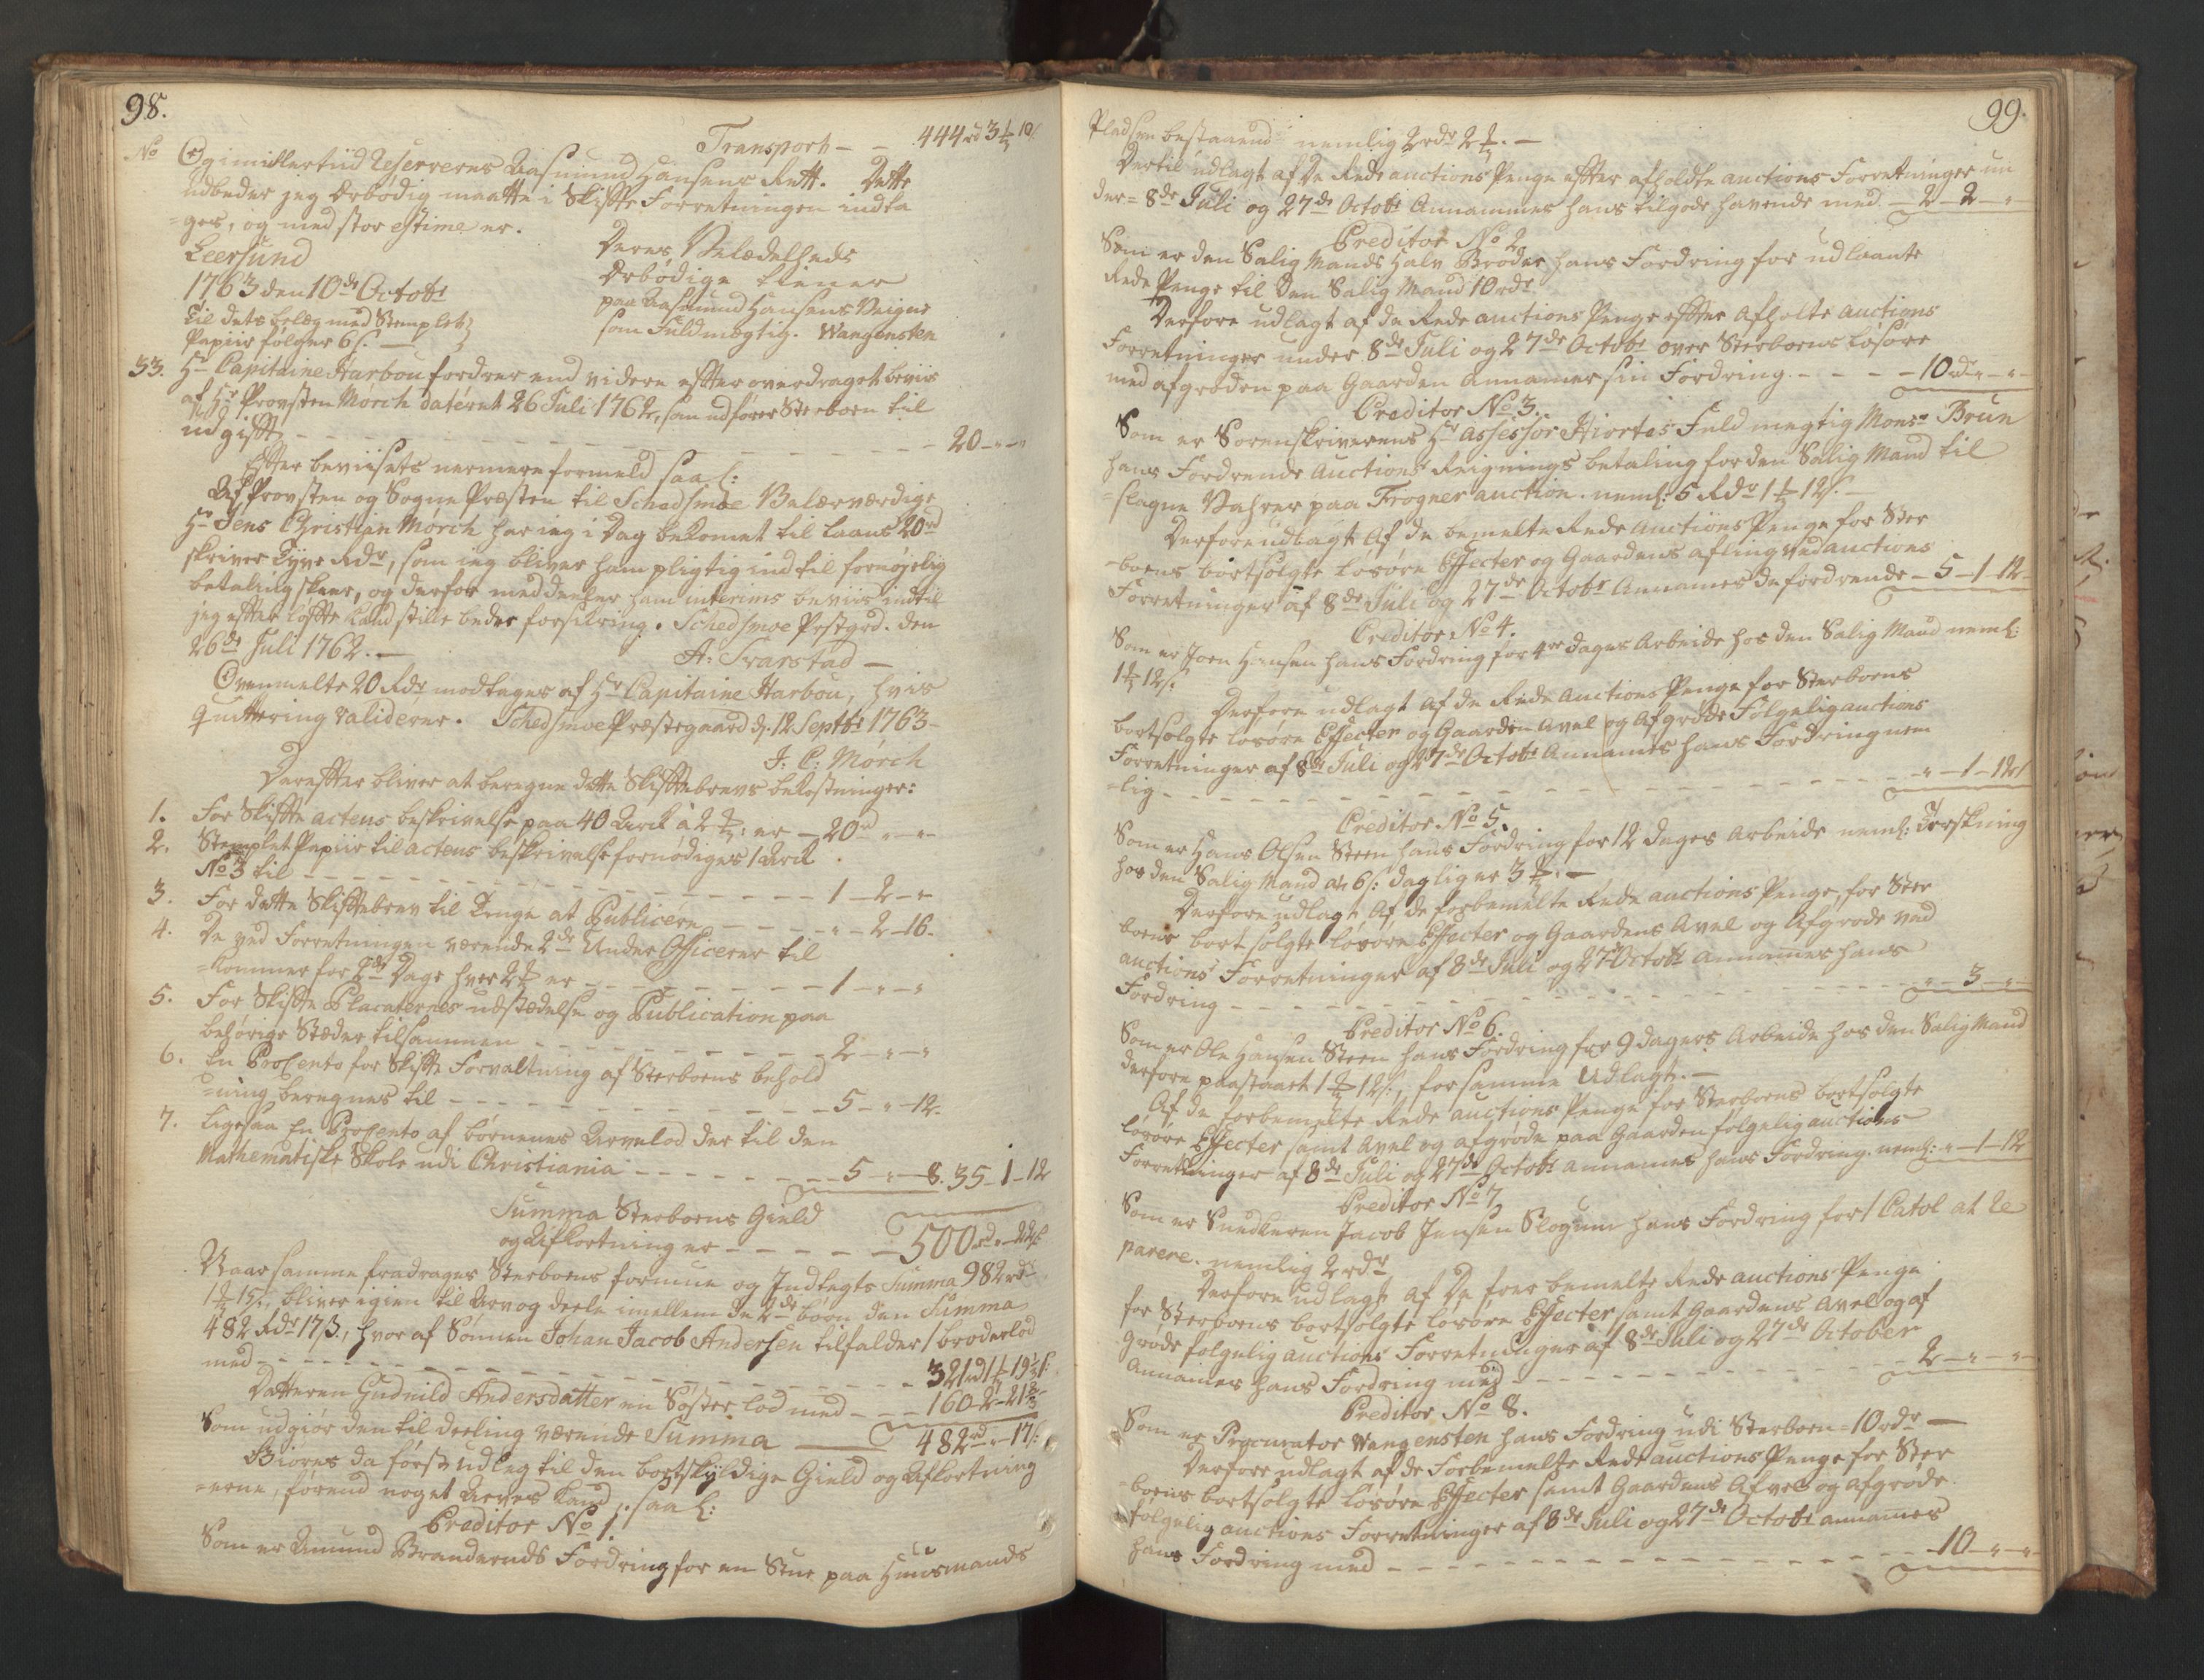 98.
Transport - - 444 rd 3 ꝑ 10 s.
No Og imidlertiid Reserveres Aasmund Hansens Rett. Dette
udbeder jeg Ærbødig maatte i Skifte Forretningen indta
=ges, og med stor estime er.
Leersund
1763 den 10de Octobr
Til dets belæg med Stemplet
Papiir følger 6 s.
Deres Velædelheds
Ærbødige tiener
paa Aasmund Hansens Veigne
som Fuldmægtig. Wangensten
33. Hr Capitaine Harbou fordrer end videre efter overdraget beviis
af Hr Provsten Mørch dateret 26 Juli 1762, som udfører Sterboen til
udgifft - - - 20 - " - "
Effter beviisets nermere formeld saal:
Af Provsten og Sogne Præsten til Schedsmoe Velærværdige
Hr Jens Christian Mørch har ieg i Dag bekomet til laans 20 rd
skriver Tyve Rdr, som ieg bliver ham pligtig ind til fornøjelig
betaling skeer, og derfor meddeeler ham interims beviis indtil
jeg efter løfte kand stille beder forsikring. Schedsmoe Prstgrd. den
26de Juli 1762. -
A: Svarstad -
Ovenmelte 20 Rdr modtages af Hr Capitaine Harbou, hvis
Quittering validerer. Schedsmoe Præstegaard d: 12 Septbr 1763 -
J. C: Mørch
Dereffter bliver at beregne dette Skifftebrevs bekostninger:
1. For Skiffte actens beskrivelse paa 40 Ark a 2 ꝑ: er - 20 rd " - "
2. Stemplet Papiir til actens beskrivelse fornødiges 1 Ark
No 3 til - - - 1 - 2 - "
3. For dette Skifftebrev til Tinge at Publicere - - - " - 2 - 16.
4. De ved Forretningen værende 2de Under Officerer til
=kommer for 2de Dage hver 2 ꝑ er - - - 1 - " - "
5. For Skiffte Placaternes udstædelse og Publication paa
behørige Stæder tilsammen - - - 2 - " - "
6. En ProCento for Skiffte Forvaltning af Sterboens behold
=ning beregnes til - - - 5 - " - 12.
7. Ligesaa En ProCento af børnenes Arvelod der til den
Mathematiske Skole udi Christiania - - - 5 - " - 8. 35 - 1 - 12
Summa Sterboens Gield
og Afkortning er - - - 500 rd " - 22 s.
Naar samme fradrages Sterboens formue og Indtegts Summa 982 rd
1 ꝑ 15 s., bliver igien til Arv og deele imellem de 2de børn den Summa
482 Rdr 17 s., hvor af Sønnen Johan Jacob Andersen tilfalder 1 broderlod
med - - - 321 rd 1 ꝑ 19 1/3 s:
Datteren Gudnild Andersdatter en Søster lod med - - - 160 - 2 - 21 2/3
Som udgiør den til deeling værende Summa - 482 rd " - 17 s:
Giøres da først udleg til den bortskyldige Gield og Afkortning
=erne, førend noget Arves kand, saal:
Creditor No 1.
Som er Amund Branderuds Fordring for en Stue paa Huusmands
99.
Pladsen bestaaend nemlig 2 rdr 2 ꝑ. -
Dertil udlagt af De Rede auctions Penge efter afholdte auctions Forretninger un
der = 8de Juli og 27de Octobr Annammes hans tilgode havende med - 2 - 2 - "
Creditor No 2
Som er den Salig Mands Halv Broder hans Fordring for udlaante
Rede Penge til Den Salig Mand 10 rdr
Derfore udlagt af de Rede auctions Penge effter Afholte auctions
Forretninger under 8de Juli og 27de Octobr over Sterboens løsøre
med afgrøden paa Gaarden Annamer sin Fordring. - - - 10 rdr " - "
Creditor No 3.
Som er Sorenskriverens Hr Assessor Hiortes Fuld megtig Monsr Brun
hans Fordrende Auctions Reignings betaling for den Salig Mand til
=slagne Vahrer paa Frogner auction. neml: 5 Rdr 1 ꝑ 12 s. -
Derfore udlagt Af de bemelte Rede auctions Penge for Ster
=boens bortsolgte løsøre Effecter og Gaardens afling ved auctions
Forretninger af 8de Juli og 27de Octobr Annames da fordrende - 5 - 1 - 12 -
Creditor No 4.
Som er Joen Hansen hans Fordring for 4re dages Arbeide hos den Salig Mand neml:
1 ꝑ 12 s.
Derfore udlagt af de Rede Auctions Penge for Sterboens
bortsolgte løsøre Effecter og Gaarden Avel og Afgrøde Følgelig auctions
Forretninger af 8de Juli og 27de Octobr Annames hans Fordring nem
=lig - - - " - 1 - 12 s
Creditor No 5.
Som er Hans Olsen Steen hans Fordring for 12 dages Arbeide neml: Terskning
hos den Salig Mand a 6 s: daglig er 3 ꝑ. -
Derfore udlagt Af de forbemelte Rede auctions Penge, for Ster
boens bortsolgte løsøre Effecter og Gaardens Avel og Afgrøde ved
auctions Forretninger af 8de Juli og 27de Octobr annames hans
Fordring - - - " - 3 - "
Creditor No 6.
Som er Ole Hansen Steen hans Fordring for 9 dagers Arbeide hos den Salig Mand
derfore paastaaet 1 ꝑ 12 s., for samme Udlagt. -
Af de forbemelte Rede auctions Penge for Sterboens bortsolgte
løsøre Effecter samt Avel og afgrøde paa Gaarden følgelig auctions
Forretninger af 8de Juli og 27de Octobr annames hans Fordring neml: " - 1 - 12
Creditor No 7
Som er Snedkeren Jacob Jensen Slogum hans Fordring for 1 Catol at Re
parere. nemlig 2 rdr
Derfore udlagt Af De foer bemelte Rede auctions Penge
for Sterboens bortsolgte løsøre Effecter samt Gaardens Avel og af
grøde følgelig auctions Forretninger af 8de Juli og 27de October
Annames hans Fordring med - - - 2 - " - "
Creditor No 8.
Som er Procurator Wangensten hans Fordring udi Sterboen = 10 rdr -
Derfore udlagt af de Forbemelte Rede auctions Penge for Ster
=boens bortsolgte løsøre Effecter samt Gaardens Afvel og afgrøde
følgelig auctions Forretninger af 8de Juli og 27de Octobr annames
hans Fordring med - - - 10 - " - "